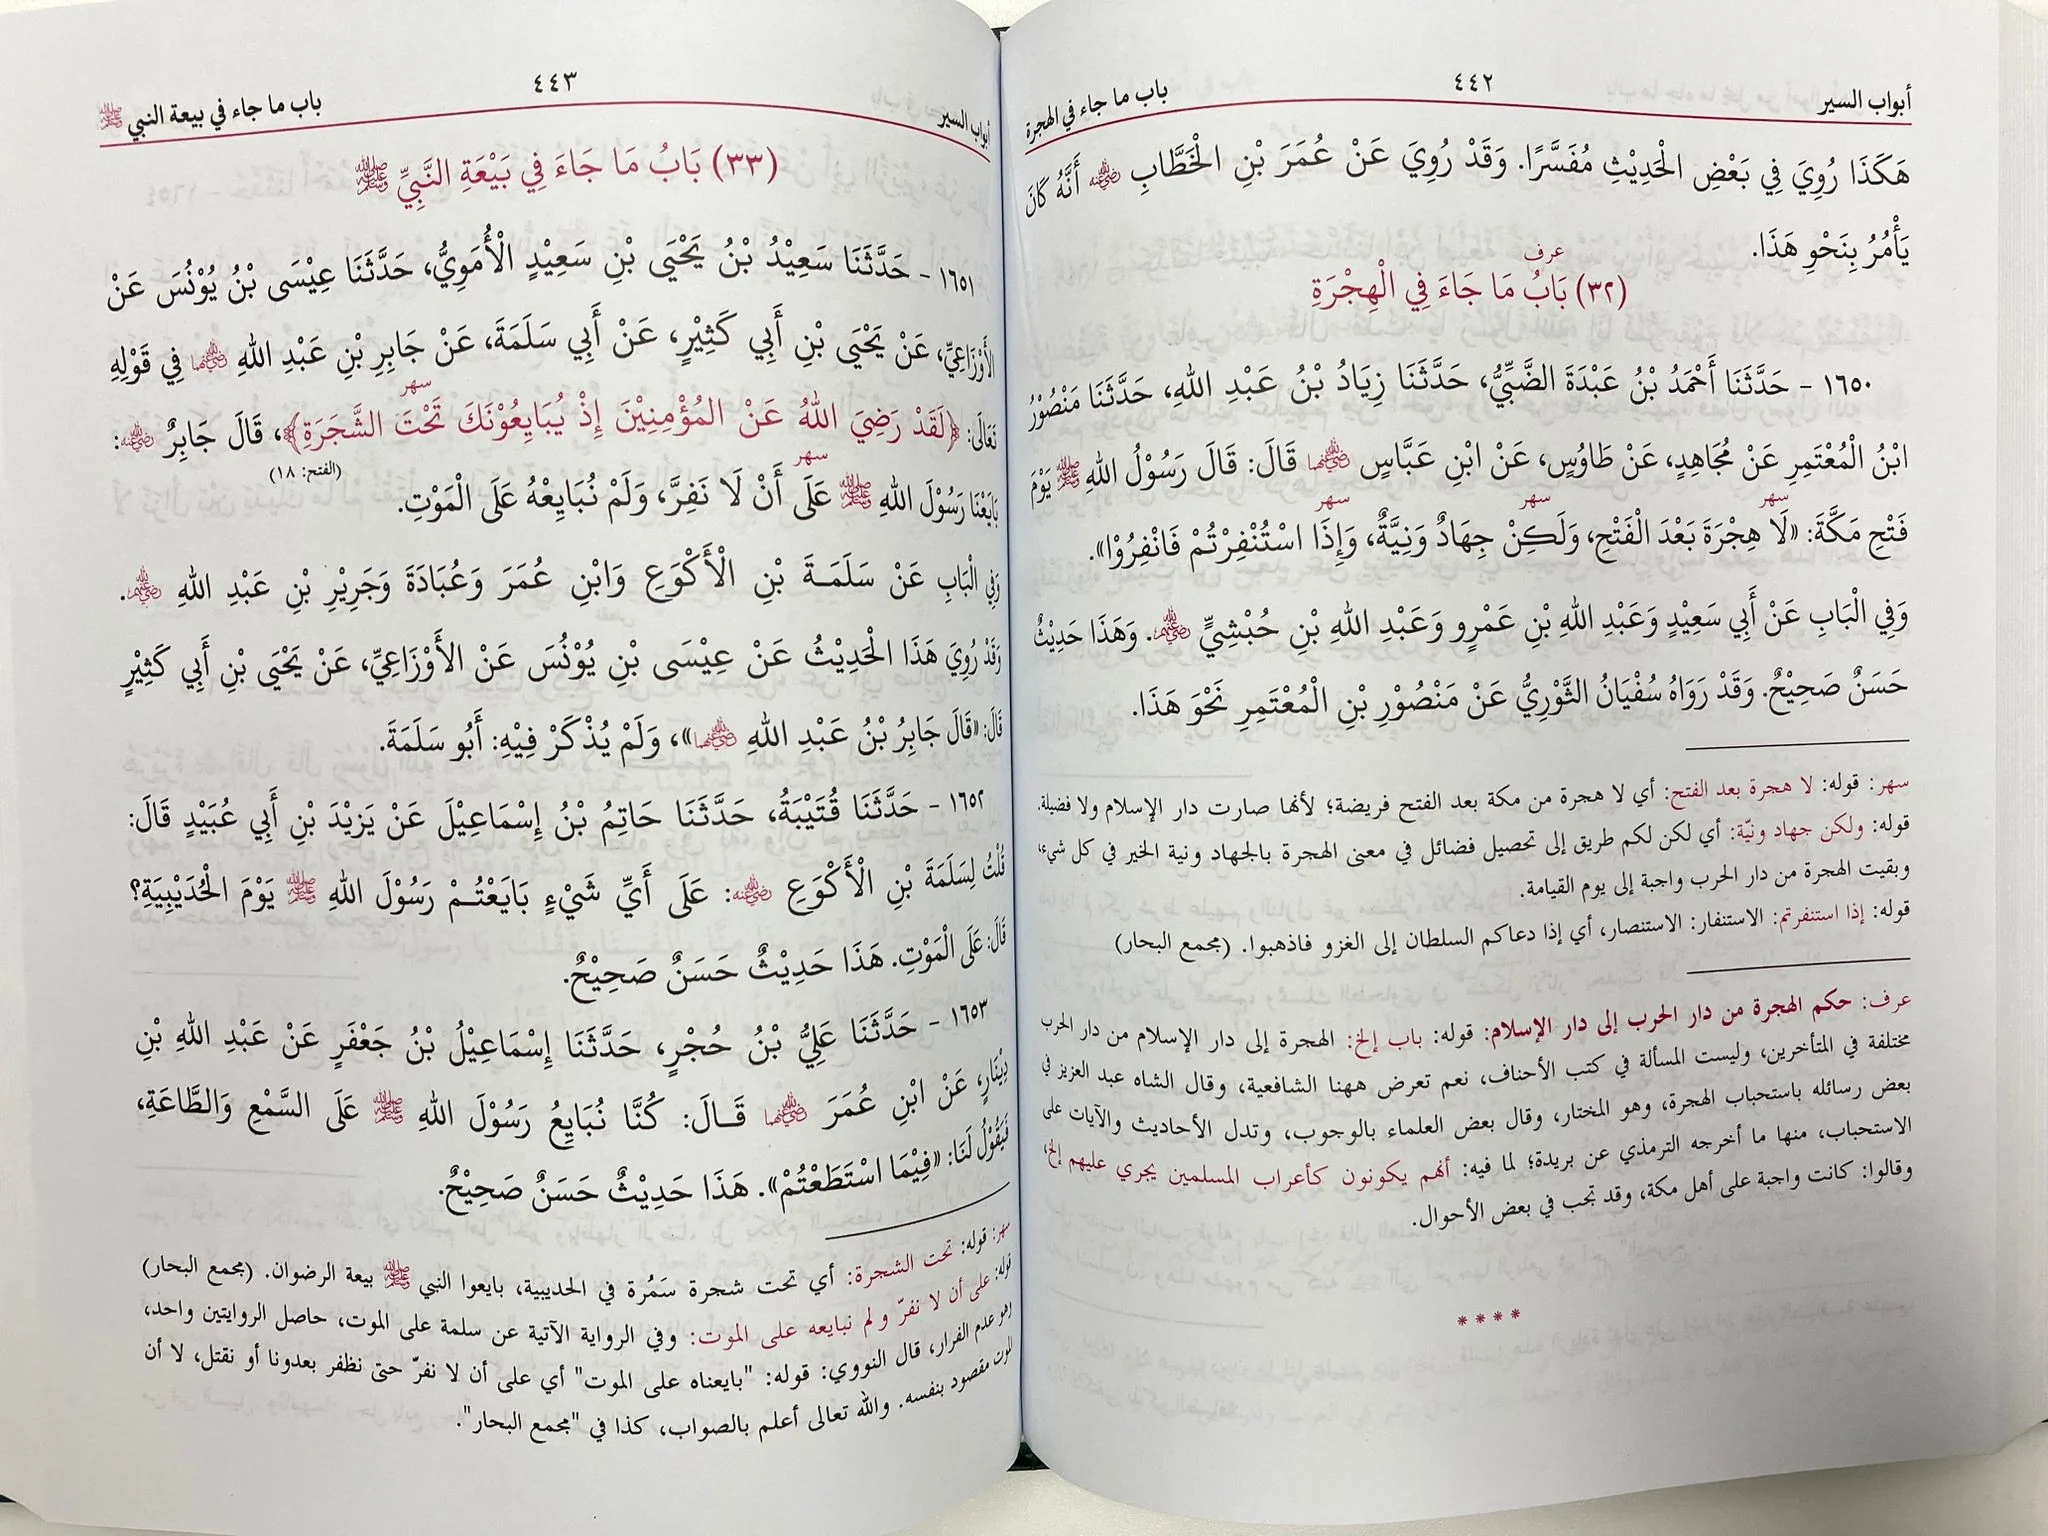 أبواب السير ٤٤٢ باب ما جاء في الهجرة
هَكَذَا رُوِيَ فِي بَعْضِ الْحَدِيْثِ مُفَسَّرًا. وَقَدْ رُوِيَ عَنْ عُمَرَ بْنِ الْخَطَّابِ رضي الله عنه أَنَّهُ كَانَ
يَأْمُرُ بِنَحْوِ هَذَا.
عرف
(٣٢) بَابُ مَا جَاءَ فِي الْهِجْرَةِ
١٦٥٠ - حَدَّثَنَا أَحْمَدُ بْنُ عَبْدَةَ الضَّبِّيُّ، حَدَّثَنَا زِيَادُ بْنُ عَبْدِ اللهِ، حَدَّثَنَا مَنْصُوْرُ
ابْنُ الْمُعْتَمِرِ عَنْ مُجَاهِدٍ، عَنْ طَاوُسٍ، عَنِ ابْنِ عَبَّاسٍ رضي الله عنهما قَالَ: قَالَ رَسُوْلُ اللهِ ﷺ يَوْمَ
سهر سهر سهر
فَتْحِ مَكَّةَ: «لَا هِجْرَةَ بَعْدَ الْفَتْحِ، وَلَكِنْ جِهَادٌ وَنِيَّةٌ، وَإِذَا اسْتُنْفِرْتُمْ فَانْفِرُوْا».
وَفِي الْبَابِ عَنْ أَبِي سَعِيْدٍ وَعَبْدِ اللهِ بْنِ عَمْرٍو وَعَبْدِ اللهِ بْنِ حُبْشِيٍّ رضي الله عنهم. وَهَذَا حَدِيْثٌ
حَسَنٌ صَحِيْحٌ. وَقَدْ رَوَاهُ سُفْيَانُ الثَّوْرِيُّ عَنْ مَنْصُوْرِ بْنِ الْمُعْتَمِرِ نَحْوَ هَذَا.
سهر: قوله: لا هجرة بعد الفتح: أي لا هجرة من مكة بعد الفتح فريضة؛ لأنها صارت دار الإسلام ولا فضيلة.
قوله: ولكن جهاد ونيّة: أي لكن لكم طريق إلى تحصيل فضائل في معنى الهجرة بالجهاد ونية الخير في كل شيء،
وبقيت الهجرة من دار الحرب واجبة إلى يوم القيامة.
قوله: إذا استنفرتم: الاستنفار: الاستنصار، أي إذا دعاكم السلطان إلى الغزو فاذهبوا. (مجمع البحار)
عرف: حكم الهجرة من دار الحرب إلى دار الإسلام: قوله: باب إلخ: الهجرة إلى دار الإسلام من دار الحرب
مختلفة في المتأخرين، وليست المسألة في كتب الأحناف، نعم تعرض ههنا الشافعية، وقال الشاه عبد العزيز في
بعض رسائله باستحباب الهجرة، وهو المختار، وقال بعض العلماء بالوجوب، وتدل الأحاديث والآيات على
الاستحباب، منها ما أخرجه الترمذي عن بريدة؛ لما فيه: أنهم يكونون كأعراب المسلمين يجري عليهم إلخ،
وقالوا: كانت واجبة على أهل مكة، وقد تجب في بعض الأحوال.
****
أبواب السير ٤٤٣ باب ما جاء في بيعة النبي ﷺ
(٣٣) بَابُ مَا جَاءَ فِي بَيْعَةِ النَّبِيِّ ﷺ
١٦٥١ - حَدَّثَنَا سَعِيْدُ بْنُ يَحْيَى بْنِ سَعِيْدٍ الْأُمَوِيُّ، حَدَّثَنَا عِيْسَى بْنُ يُوْنُسَ عَنْ
الأَوْزَاعِيِّ، عَنْ يَحْيَى بْنِ أَبِي كَثِيْرٍ، عَنْ أَبِي سَلَمَةَ، عَنْ جَابِرِ بْنِ عَبْدِ اللهِ رضي الله عنهما فِي قَوْلِهِ
سهر
تَعَالَى: ﴿لَقَدْ رَضِيَ اللهُ عَنْ الْمُؤْمِنِيْنَ إِذْ يُبَايِعُوْنَكَ تَحْتَ الشَّجَرَةِ﴾، قَالَ جَابِرٌ رضي الله عنه:
سهر (الفتح: ١٨)
بَايَعْنَا رَسُوْلَ اللهِ ﷺ عَلَى أَنْ لَا نَفِرَّ، وَلَمْ نُبَايِعْهُ عَلَى الْمَوْتِ.
وَفِي الْبَابِ عَنْ سَلَمَةَ بْنِ الْأَكْوَعِ وَابْنِ عُمَرَ وَعُبَادَةَ وَجَرِيْرِ بْنِ عَبْدِ اللهِ رضي الله عنهم.
وَقَدْ رُوِيَ هَذَا الْحَدِيْثُ عَنْ عِيْسَى بْنِ يُوْنُسَ عَنْ الأَوْزَاعِيِّ، عَنْ يَحْيَى بْنِ أَبِي كَثِيْرٍ
قَالَ: «قَالَ جَابِرُ بْنُ عَبْدِ اللهِ رضي الله عنهما»، وَلَمْ يُذْكَرْ فِيْهِ: أَبُو سَلَمَةَ.
١٦٥٢ - حَدَّثَنَا قُتَيْبَةُ، حَدَّثَنَا حَاتِمُ بْنُ إِسْمَاعِيْلَ عَنْ يَزِيْدَ بْنِ أَبِي عُبَيْدٍ قَالَ:
قُلْتُ لِسَلَمَةَ بْنِ الْأَكْوَعِ رضي الله عنه: عَلَى أَيِّ شَيْءٍ بَايَعْتُمْ رَسُوْلَ اللهِ ﷺ يَوْمَ الْحُدَيْبِيَةِ؟
قَالَ: عَلَى الْمَوْتِ. هَذَا حَدِيْثٌ حَسَنٌ صَحِيْحٌ.
١٦٥٣ - حَدَّثَنَا عَلِيُّ بْنُ حُجْرٍ، حَدَّثَنَا إِسْمَاعِيْلُ بْنُ جَعْفَرٍ عَنْ عَبْدِ اللهِ بْنِ
دِيْنَارٍ، عَنْ ابْنِ عُمَرَ رضي الله عنهما قَالَ: كُنَّا نُبَايِعُ رَسُوْلَ اللهِ ﷺ عَلَى السَّمْعِ وَالطَّاعَةِ،
فَيَقُوْلُ لَنَا: «فِيْمَا اسْتَطَعْتُمْ». هَذَا حَدِيْثٌ حَسَنٌ صَحِيْحٌ.
سهر: قوله: تحت الشجرة: أي تحت شجرة سَمُرة في الحديبية، بايعوا النبي ﷺ بيعة الرضوان. (مجمع البحار)
قوله: على أن لا نفرّ ولم نبايعه على الموت: وفي الرواية الآتية عن سلمة على الموت، حاصل الروايتين واحد،
وهو عدم الفرار، قال النووي: قوله: "بايعناه على الموت" أي على أن لا نفرّ حتى نظفر بعدونا أو نقتل، لا أن
الموت مقصود بنفسه. والله تعالى أعلم بالصواب، كذا في "مجمع البحار".